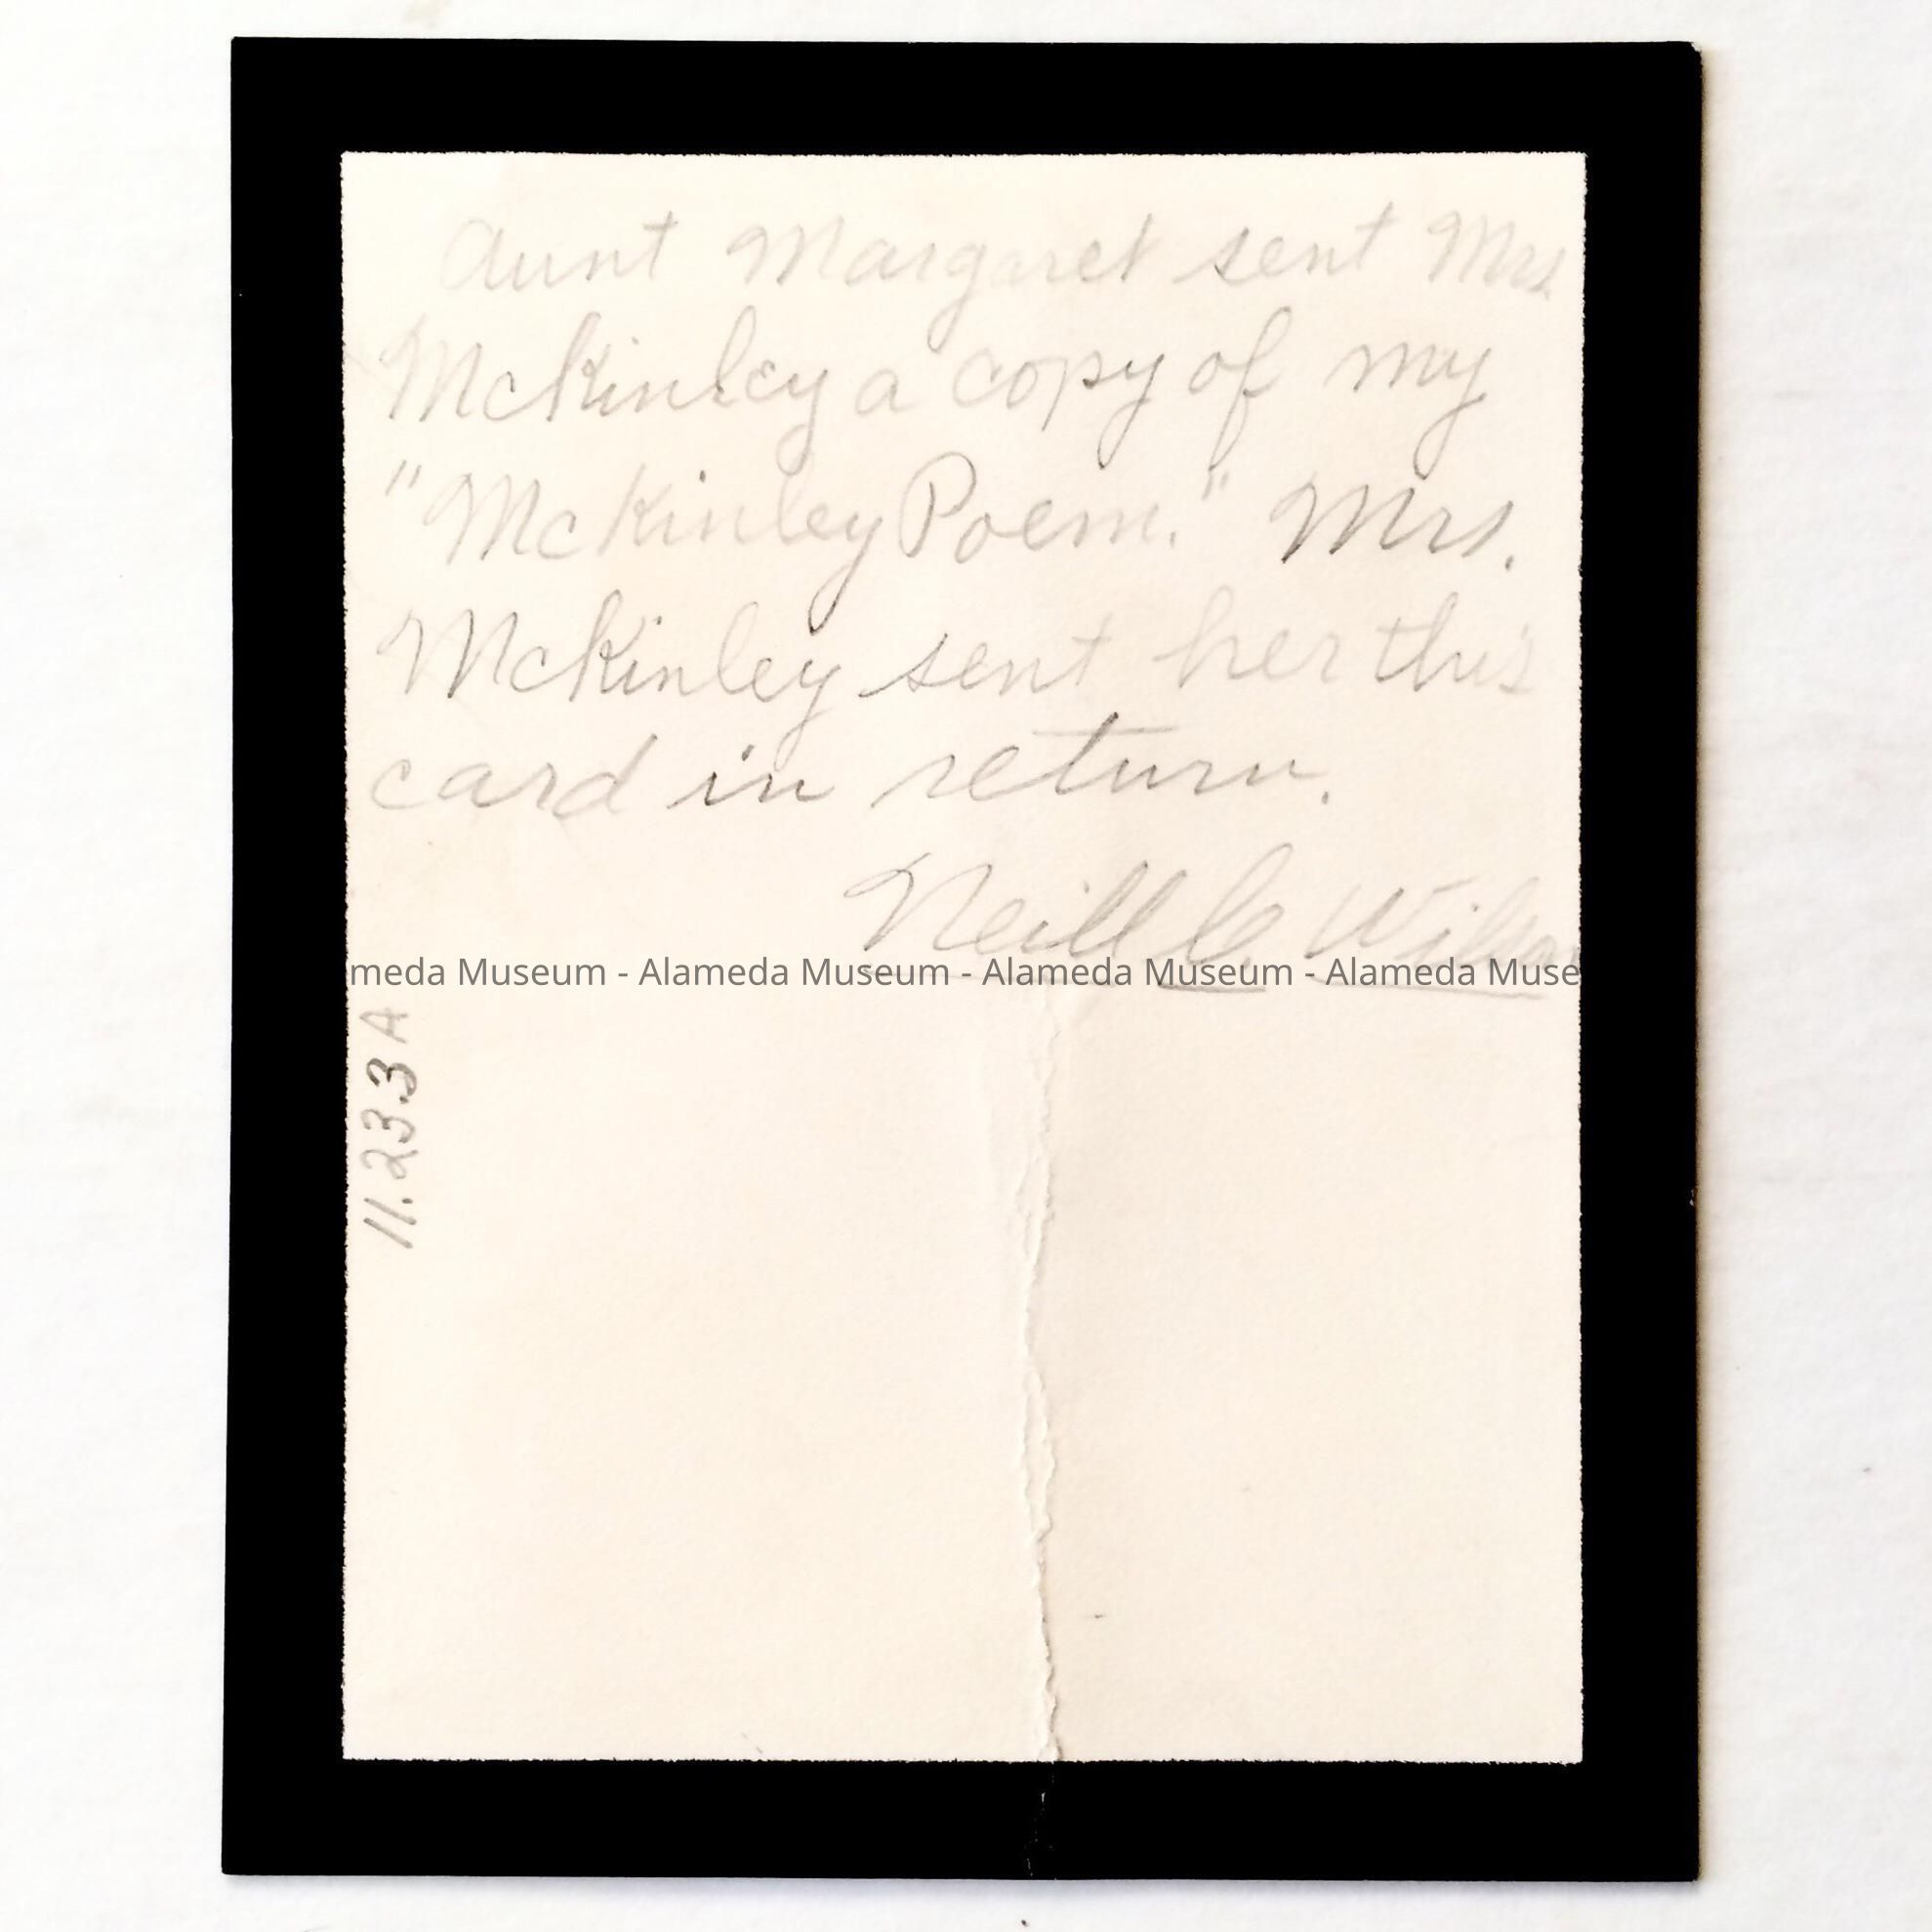 Aunt Margaret sent Mrs.
McKinley a copy of my
"McKinley Poem." Mrs.
McKinley sent her this
card in return.
Neill C. Wilson
meda Museum - Alameda Museum - Alameda Museum - Alameda Muse
11.233A